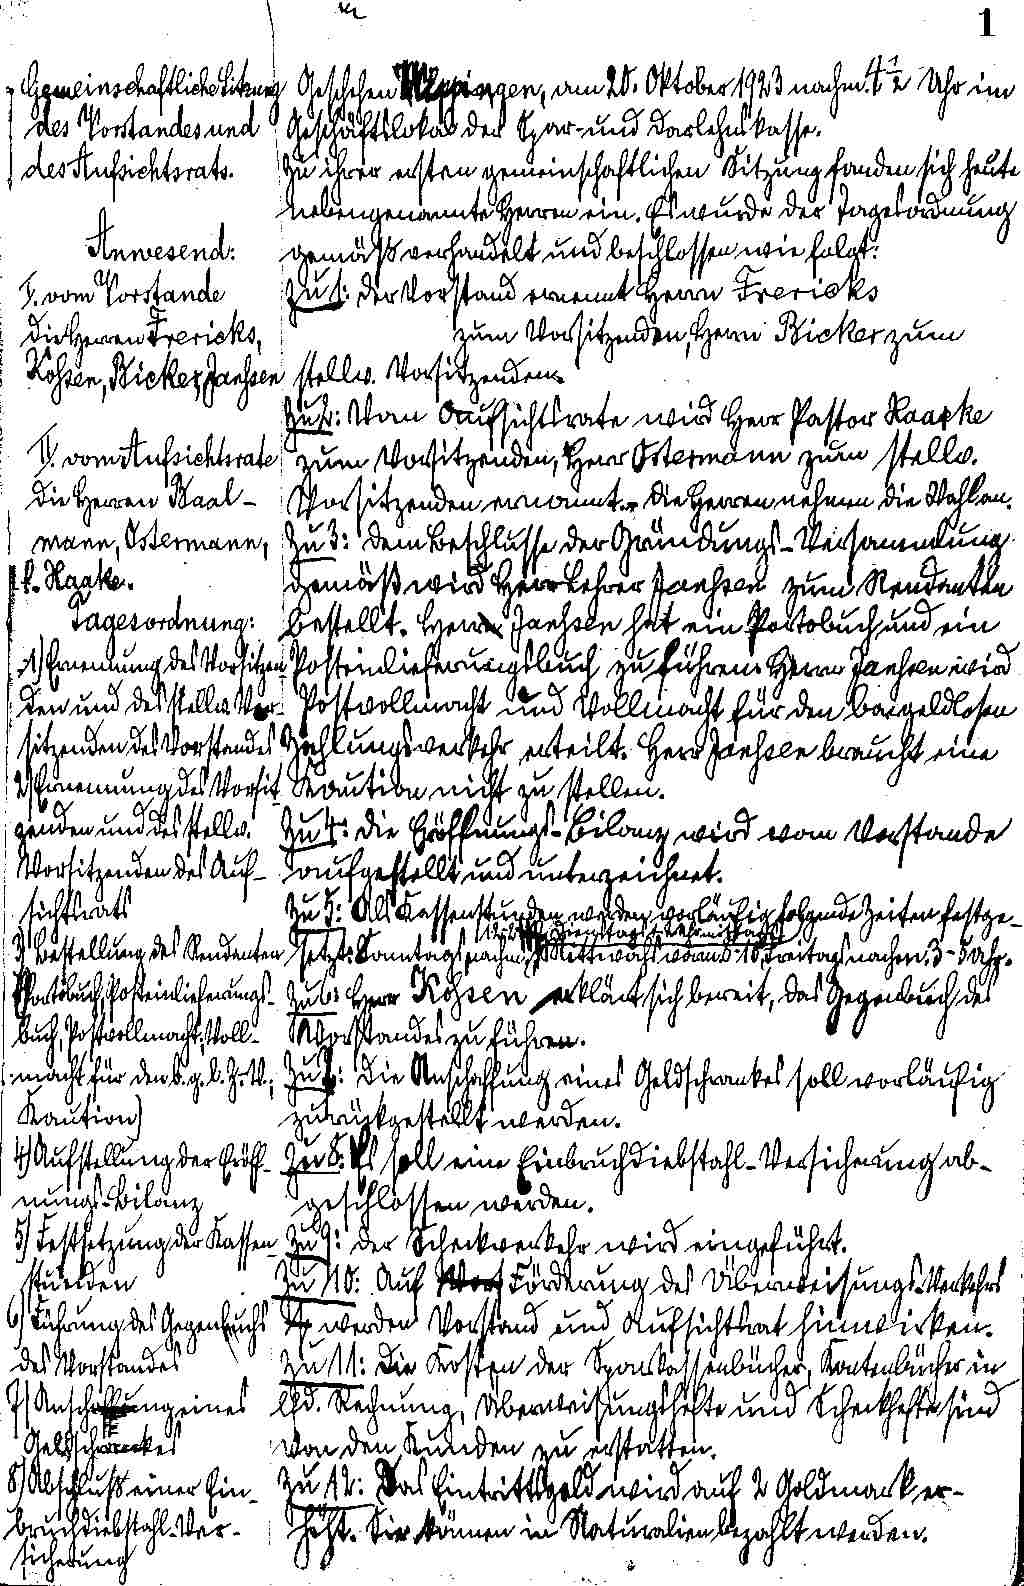 1
Gemeinschaftliche Sitzung
des Vorstandes und
des Aufsichtsrats.
Anwesend:
I. vom Vorstande
die Herren Frericks,
Kossen, Bicker, Janhsen
II. vom Aufsichtsrate
die Herren Baal-
mann, Ostermann,
P. Haake.
Tagesordnung:
1) Ernennung des Vorsitzen-
den und des stellv. Vor-
sitzenden des Vorstandes
2) Ernennung des Vorsit-
zenden und des stellv.
Vorsitzenden des Auf-
sichtsrats
3) Bestellung des Rendanten
(Portobuch, Posteinlieferungs-
buch, Postvollmacht, Voll-
macht für den b. g. l. Z. V.,
Kaution)
4) Aufstellung der Eröff-
nungs-Bilanz
5) Festsetzung der Kassen-
stunden
6) Führung des Gegenbuchs
des Vorstandes
7) Anschaffung eines
Geldschrankes
8) Abschluß einer Ein-
bruchdiebstahl-Ver-
sicherung
Geschehen, am 20. Oktober 1923 nachm. 4 1/2 Uhr im
Geschäftslokal der Spar- und Darlehnskasse.
Zu ihrer ersten gemeinschaftlichen Sitzung fanden sich heute
nebengenannte Herren ein. Es wurde der Tagesordnung
gemäß verhandelt und beschlossen wie folgt:
Zu 1: Der Vorstand ernennt Herrn Frericks
zum Vorsitzenden, Herrn Bicker zum
stellv. Vorsitzenden.
Zu 2: Vom Aufsichtsrate wird Herr Pastor Haake
zum Vorsitzenden, Herr Ostermann zum stellv.
Vorsitzenden ernannt. - Die Herren nehmen die Wahl an.
Zu 3: Dem Beschlusse der Gründungs-Versammlung
gemäß wird Herr Lehrer Janhsen zum Rendanten
bestellt. Herr Janhsen hat ein Portobuch und ein
Posteinlieferungsbuch zu führen. Herrn Janhsen wird
Postvollmacht und Vollmacht für den bargeldlosen
Zahlungsverkehr erteilt. Herr Janhsen braucht eine
Kaution nicht zu stellen.
Zu 4: Die Eröffnungs-Bilanz wird vom Vorstande
aufgestellt und unterzeichnet.
Zu 5: Als Kassenstunden werden vorläufig folgende Zeiten festge-
setzt: Sonntags nachm., Mittwochs, Freitags nachm. 3-5 Uhr.
Zu 6: Herr Kossen erklärt sich bereit, das Gegenbuch des
Vorstandes zu führen.
Zu 7: Die Anschaffung eines Geldschrankes soll vorläufig
zurückgestellt werden.
Zu 8: Es soll eine Einbruchdiebstahl-Versicherung ab-
geschlossen werden.
Zu 9: Der Scheckverkehr wird eingeführt.
Zu 10: Auf Förderung des Überweisungs-Verkehrs
werden Vorstand und Aufsichtsrat hinwirken.
Zu 11: Die Kosten der Sparkassenbücher, Kontenbücher in
lfd. Rechnung, Überweisungshefte und Scheckhefte sind
von den Kunden zu erstatten.
Zu 12: Das Eintrittsgeld wird auf 2 Goldmark er-
höht. Sie können in Naturalien bezahlt werden.